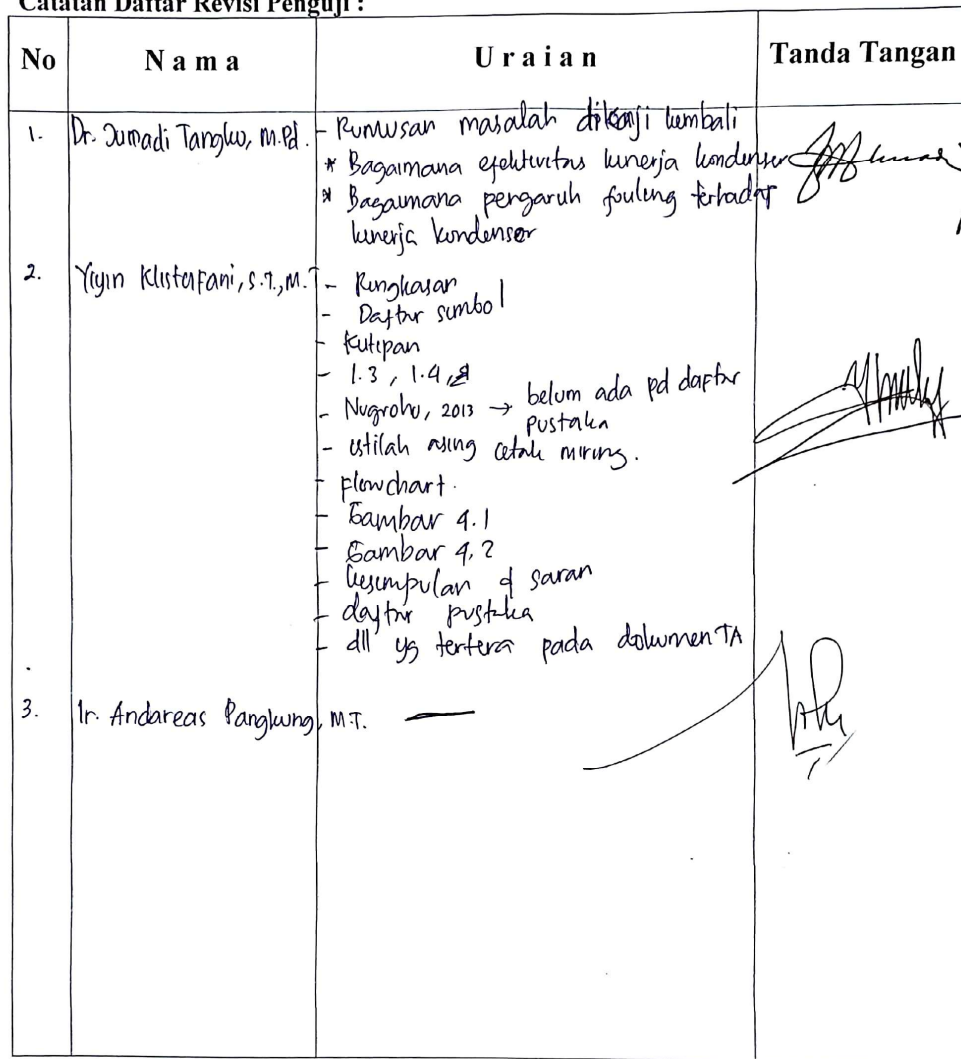 Catatan Daftar Revisi Penguji :
No Nama Uraian Tanda Tangan
1. Dr. Jumadi Tangko, M.Pd. - Rumusan masalah dikaji kembali
* Bagaimana efektivitas kinerja kondenser
* Bagaimana pengaruh fouling terhadap
kinerja kondensor
2. Yiyin Klistafani, S.T., M.T - Ringkasan
- Daftar simbol
- Kutipan
- 1.3, 1.4,
- Nugroho, 2013 → belum ada pd daftar
pustaka
- istilah asing cetak miring.
- flowchart.
- Gambar 4.1
- Gambar 4.2
- kesimpulan & saran
- daftar pustaka
- dll yg tertera pada dokumen TA
3. Ir. Andareas Pangkung, M.T. —